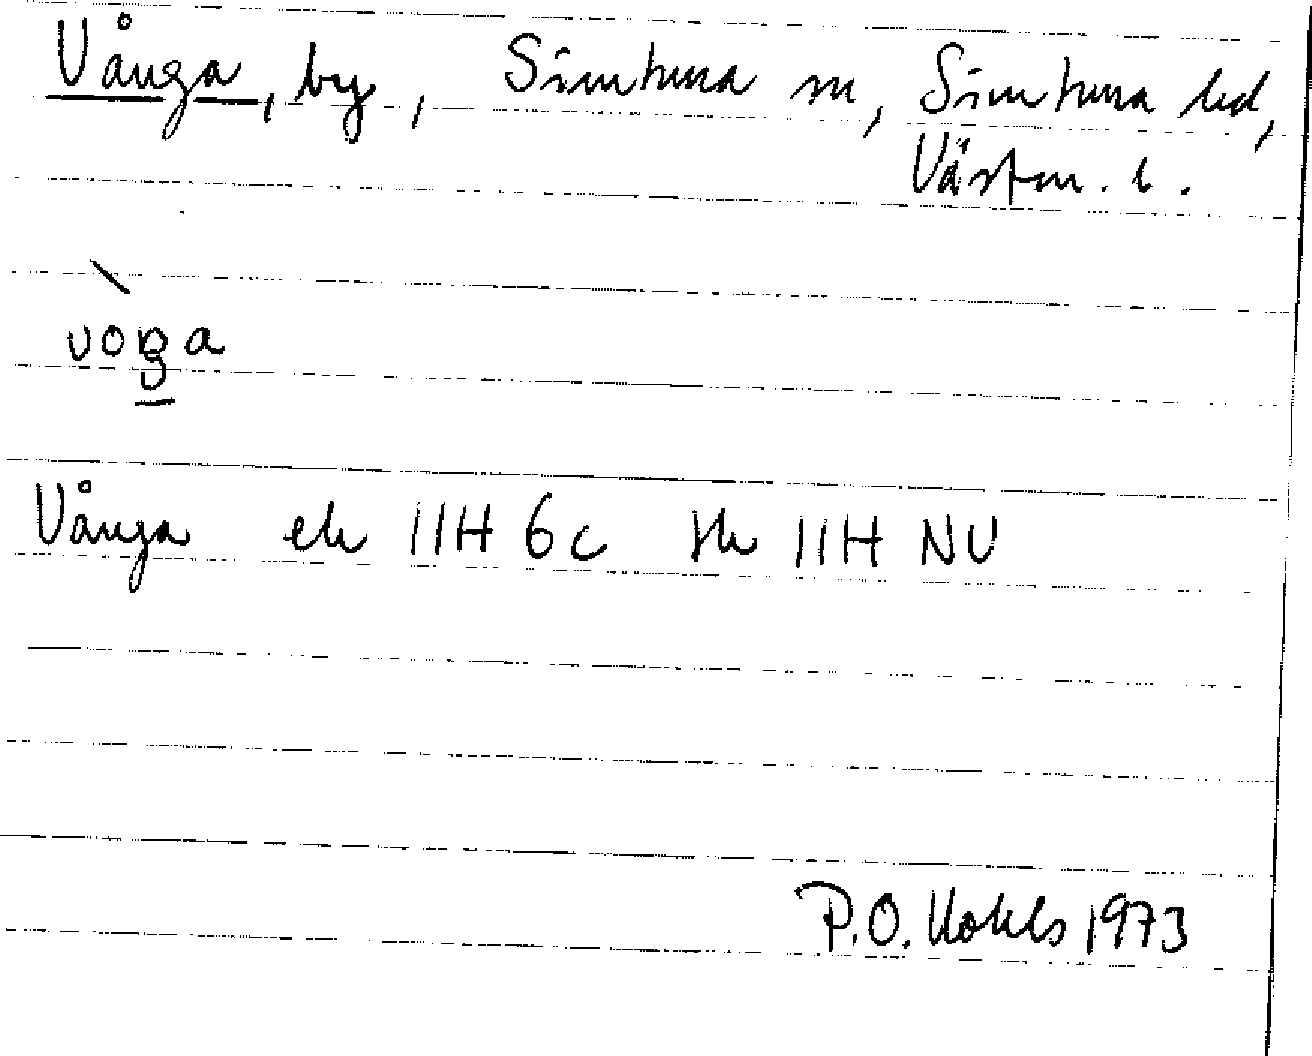 Vånga, by, Simtuna sn, Simtuna hd,
Västm. l.
Vånga ek 11H 6c tk 11H NV
P.O. 1973